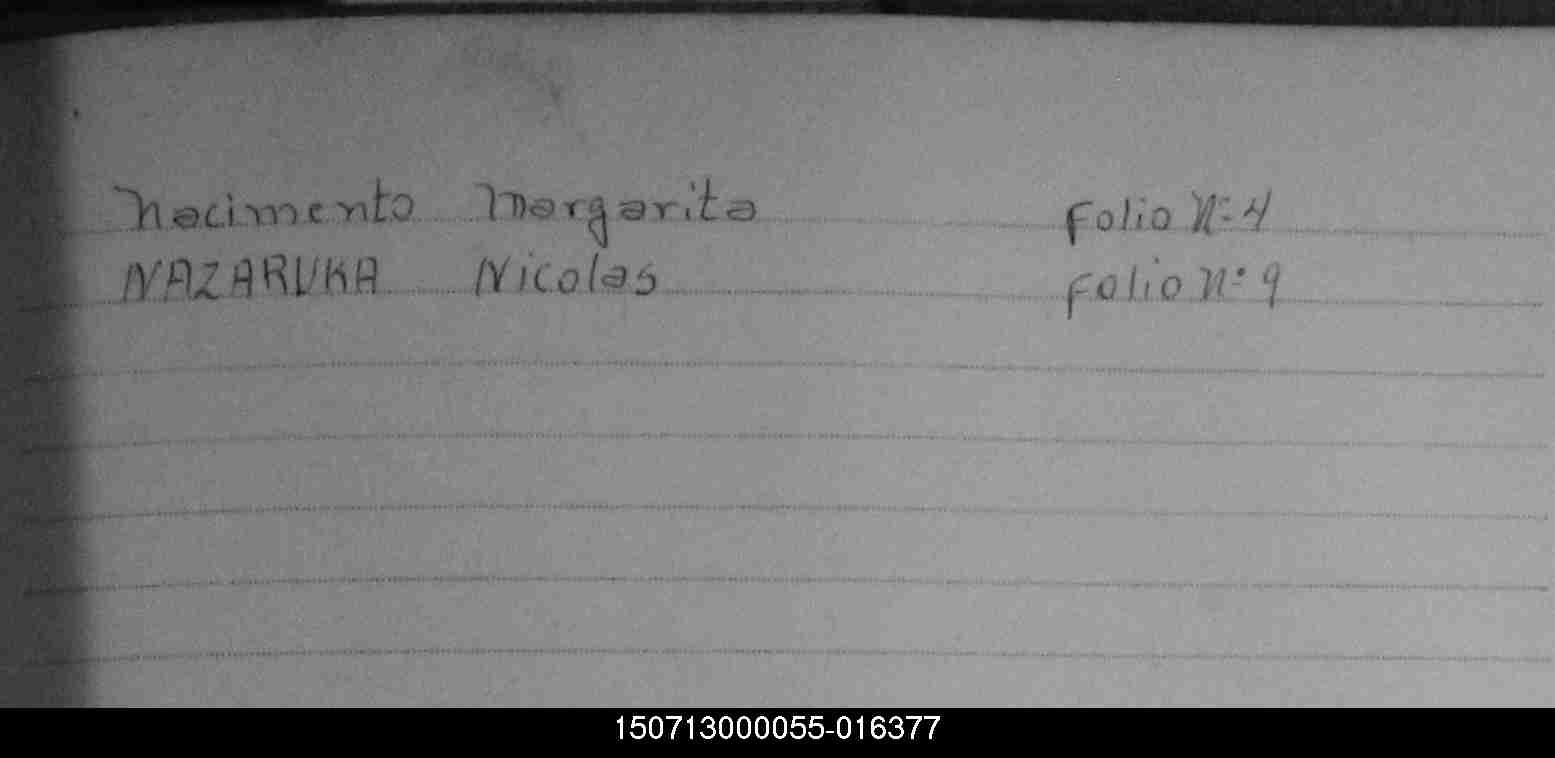 Nacimento Margarita Folio Nº 4
NAZARUKA Nicolas Folio nº 9
150713000055-016377